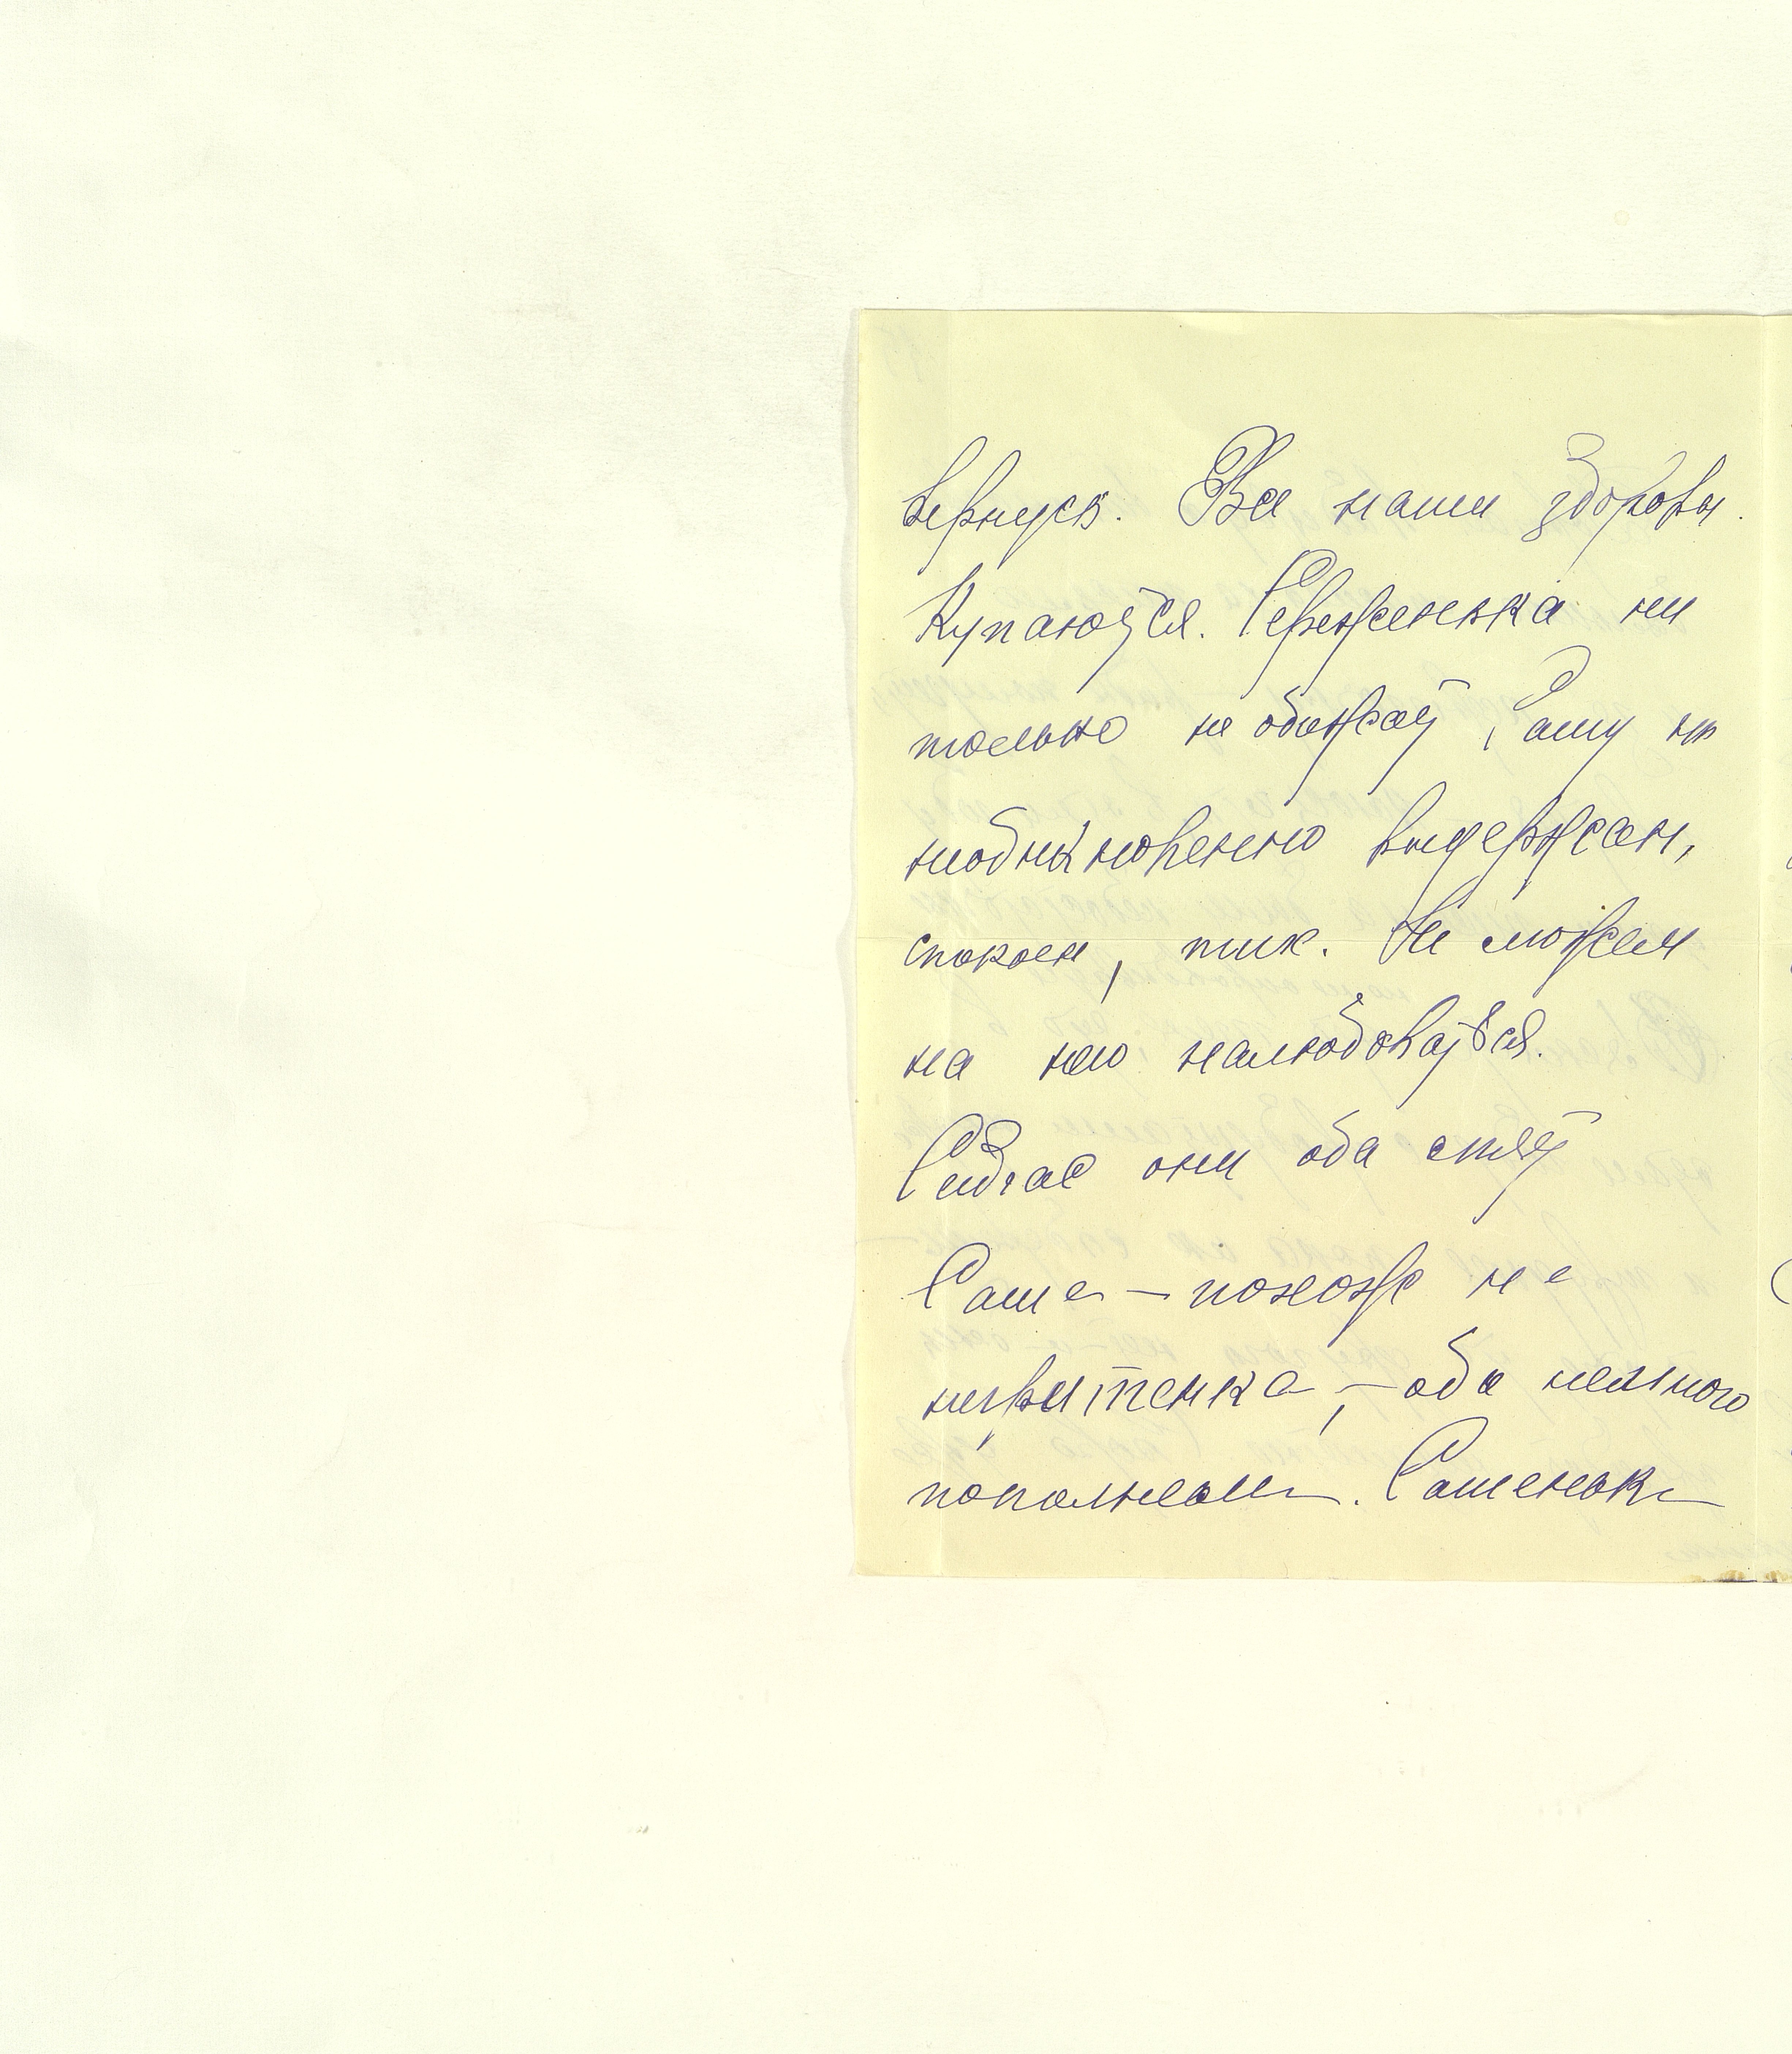 вернусь. Все наши здоровы.
Купаются. Сереженька не
только не обижает Сашу но
необыкновенно выдержан,
спокоен, тих. Не можем
на него налюбоваться.
Сейчас они оба спят
Саша – похож не
негритенка, – оба немного
пополнели. Сашенька